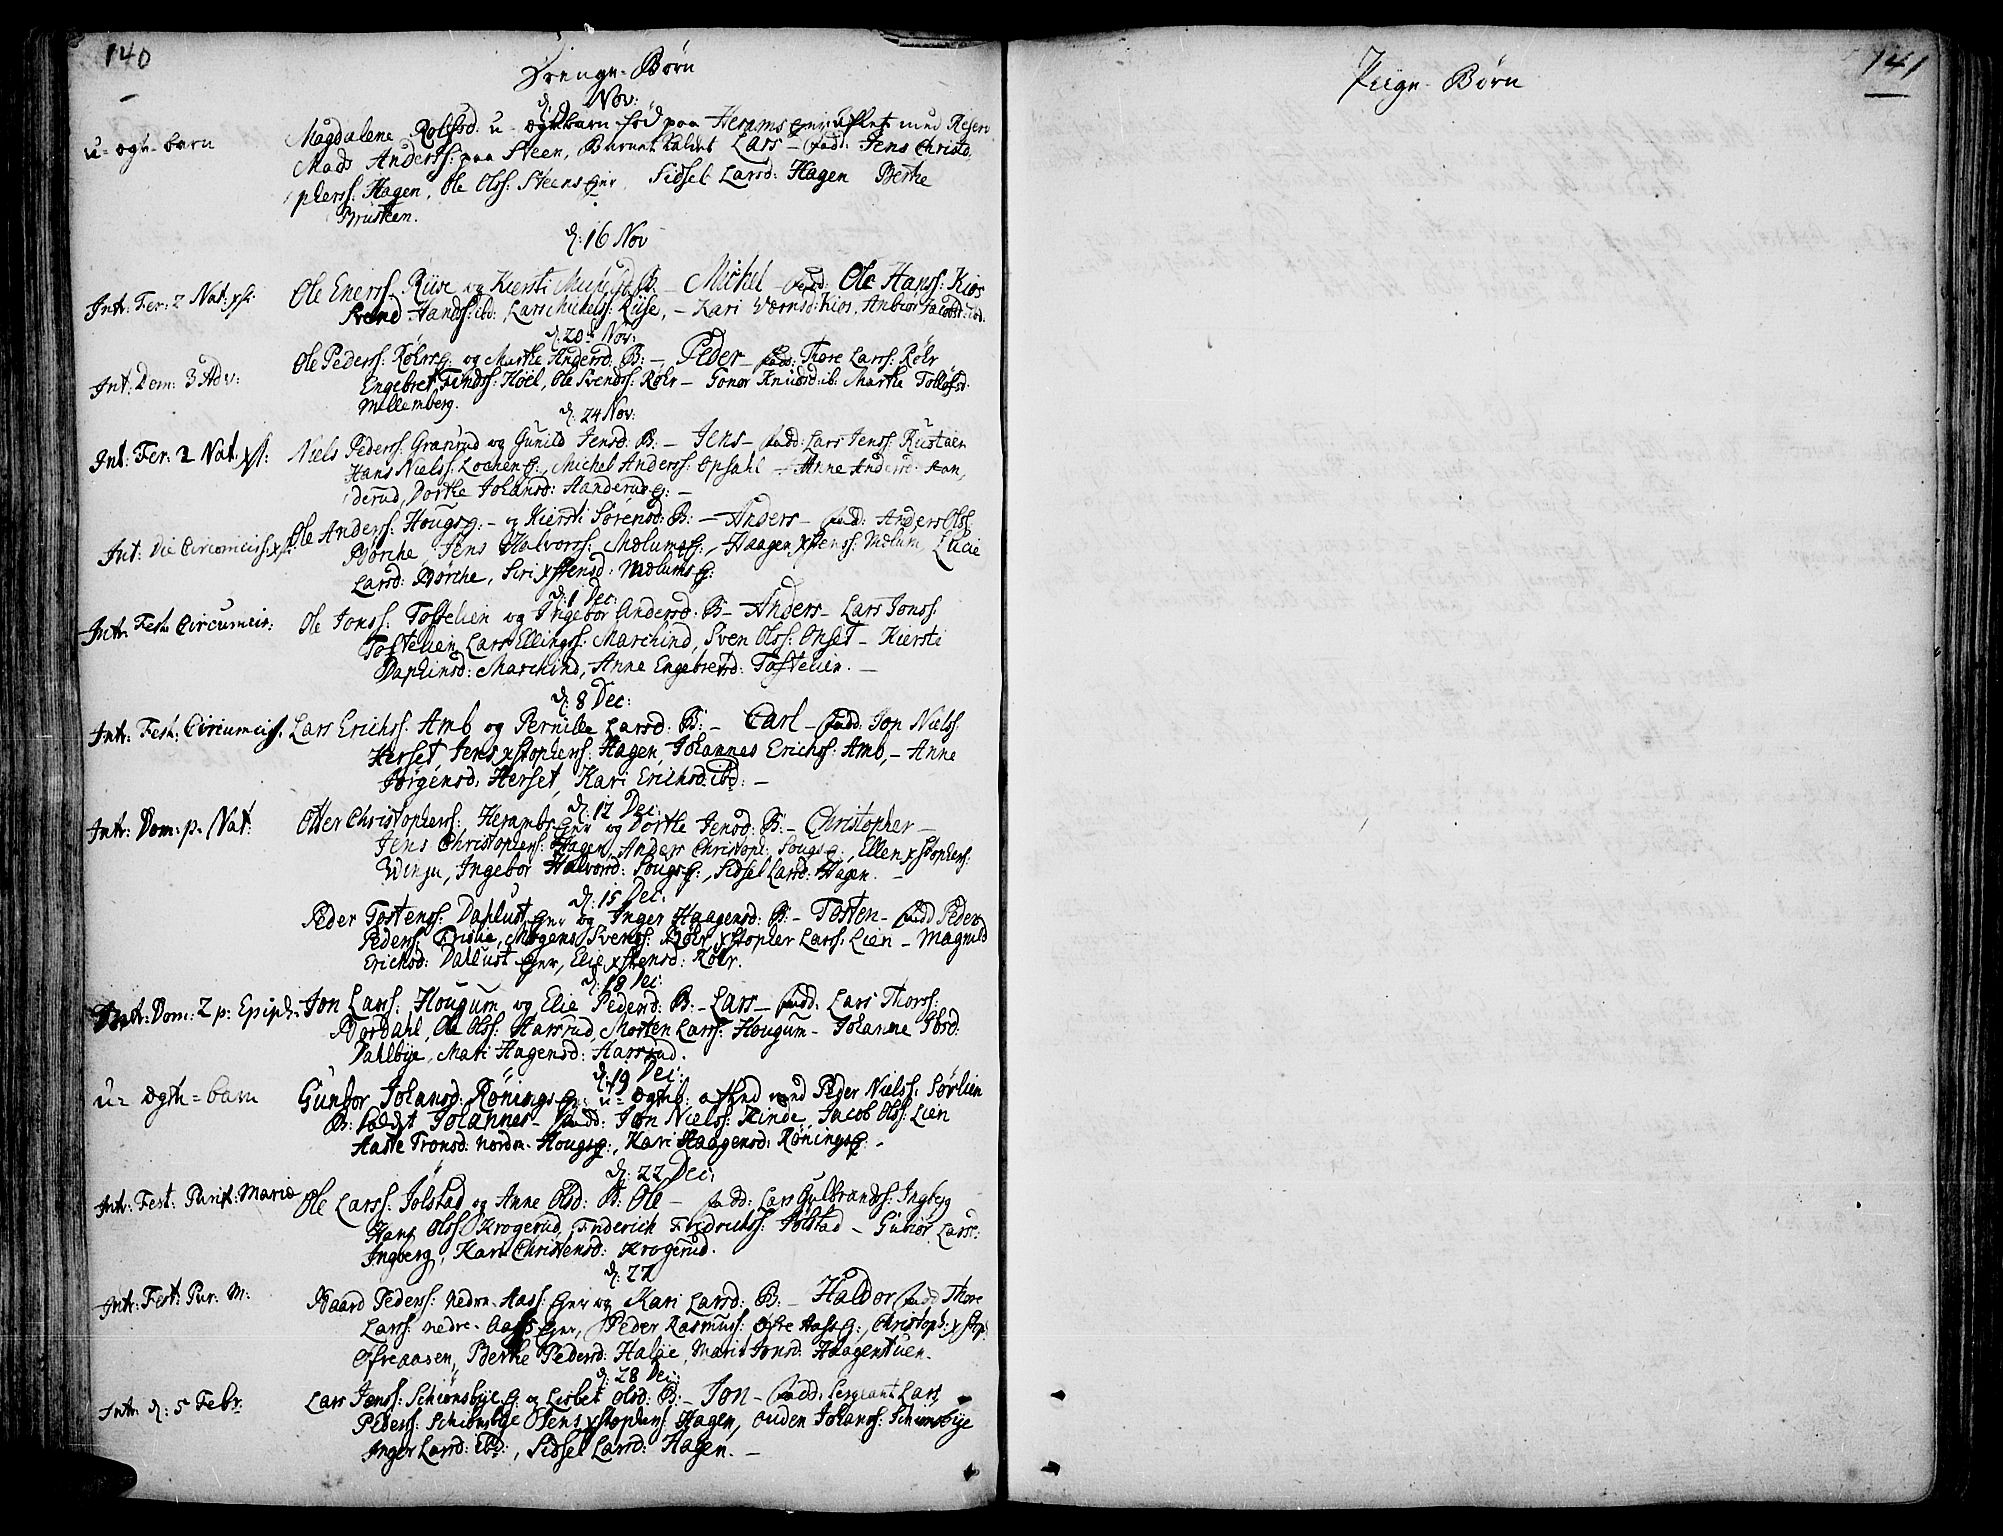 140
Drenge-Børn
d: Nov:
u-ægte-barn
Magdalene Rolfsd: u-ægte barn fød paa Herams Ejer med Reserv
Mads Anderss: paa Steen, Barnet kaldet Lars - fadd: Jens Christo
phers: Hagen, Ole Olss: Steens Ejer, Sidsel Larsd: Hagen Berthe
Brusteen.
d: 16 Nov
Intr: Fer: 2 Nat: xsti:
Ole Enerss: Riise og Kiersti B: - Michel - fadd: Ole Hanss: Kios
Svend Handss: ibd: Lars Michelss: Riise, - Kari Kios, Anbior Jacobsd: ibd.
d: 20 Nov:
Int: Dom: 3 Adv:
Ole Pederss: Røhrs E: og Marthe Andersd: B: - Peder - fadd: Thore Larss: Røhr
Engebret Høel, Ole Svendss: Røhr - Gonor Knudsd: ib: Marthe Tollofsd:
Mellemberg.
d: 24 Nov:
Int: Fer: 2 Nat. xsti:
Niels Pederss: Grasrud og Gunild Jensd: B: - Jens - fadd: Lars Jenss: Rustaen
Hans Nielss: Lochen E:, Michel Anderss: Opsahl - Anne Andersd: Aan,
derud, Dorthe Johansd: Aanderuds E: -
Int: Die Circumciss: xsti
Ole Anderss: Hougs E: - og Kiersti Sørensd: B: - Anders - fadd: Anders Olss:
Børche Jens Halvorss: Mælums E:, Haagen xstenss: Mælum, Lucie
Larsd: Børche, Siri xstensd: Mælums E:
d: 1 Dec:
Intr: Fest: Circumcis:
Ole Jonss: Tostelien og Ingebor Andersd: B - Anders - Lars Jonss:
Tostelien, Lars Ellingss: Marchind, Sven Olss: Onset - Kiersti
Daplinsd: Marchind, Anne Engebretsd: Tostelien. -
d: 8 Dec:
Intr: Fest: Circumciss.
Lars Erichss: Amb og Pernille Larsd: B: - Carl - fadd: Jon Nielss:
Herset Jens xstopherss: Hagen, Johannes Erichss: Amb, - Anne
Jørgensd: Herset, Kari Erichsd: ibd: -
d: 12 Dec:
Intr: Dom: p: Nat:
Otter Christopherss: Herambs Ejer og Dorthe Jensd: B: - Christopher -
Jens Christopherss: Hagen, Anders Christoph: Sougs E:, Ellen xstophers:
Winju, Ingebor Halvorsd: Sougs E:, Sidsel Larsd: Hagen. -
d: 15 Dec:
Peder Tostenss: Dahlust Ejer og Inger Haagensd: B: - Tosten - fadd Peder
Pederss: Frislie, Mogens Svenss: Røhr, xstopher Larss: Lien - Magnild
Erichsd: Dahlust Ejer, Elie xstensd: Røhr.
d: 18 Dec:
Intr: Dom: 2 p: Epiph:
Jon Larss: Hougum og Elie Pedersd: B: - Lars - fadd: Lars Thorss:
Nordahl, Ole Olss: Harsrud, Morten Larss: Hougum - Johanne Ibsd:
Dahlbye, Mari Hagensd: Harsrud.
d: 19 Dec:
u-ægte-barn
Gunbor Johansd: Rønings E: u-ægteb: aflet med Peder Nielss: Sørlien
B: kaldt Johannes - fadd: Jon Nielss: Kinde, Jacob Olss: Lien
Aaste Tronsd: nordre Hougs E:, Kari Haagensd: Rønings E: -
d: 22 Dec:
Intr: Fest: Purif: Mariæ
Ole Larss: Jølstad og Anne Olsd: B: Ole - fadd: Lars Gulbrandss: Ingberg
Hans Olss: Krogerud, Friderich Fridrichss: Jølstad - Gubiør Larsd:
Ingberg, Kari Christensd: Krogerud.
d: 27
Intr: Fest: Pur: M:
Baard Pederss: nedre Aass: Ejer og Kari Larsd: B: - Haldor fadd Thore
Larss: nedre-Aass Ejer, Peder Rasmuss: Øfre Aass E:, Christoph: xstoph:
Øfreaasen, Berthe Pedersd: Halæ, Mari Jonsd: Haagenstuen.
d: 28 Dec:
Intr: d: 5 Febr
Lars Jonss: Schiønsbye E: og Lisbet Olsd: B: - Jon - fadd: Sergeant Lars
Pederss: Schiønsbye Jens xstopherss: Hagen, Ouden Johanss: Schiønsbye
Inger Larsd: ibd:, Sidsel Larsd: Hagen. -
141
Piige-Børn